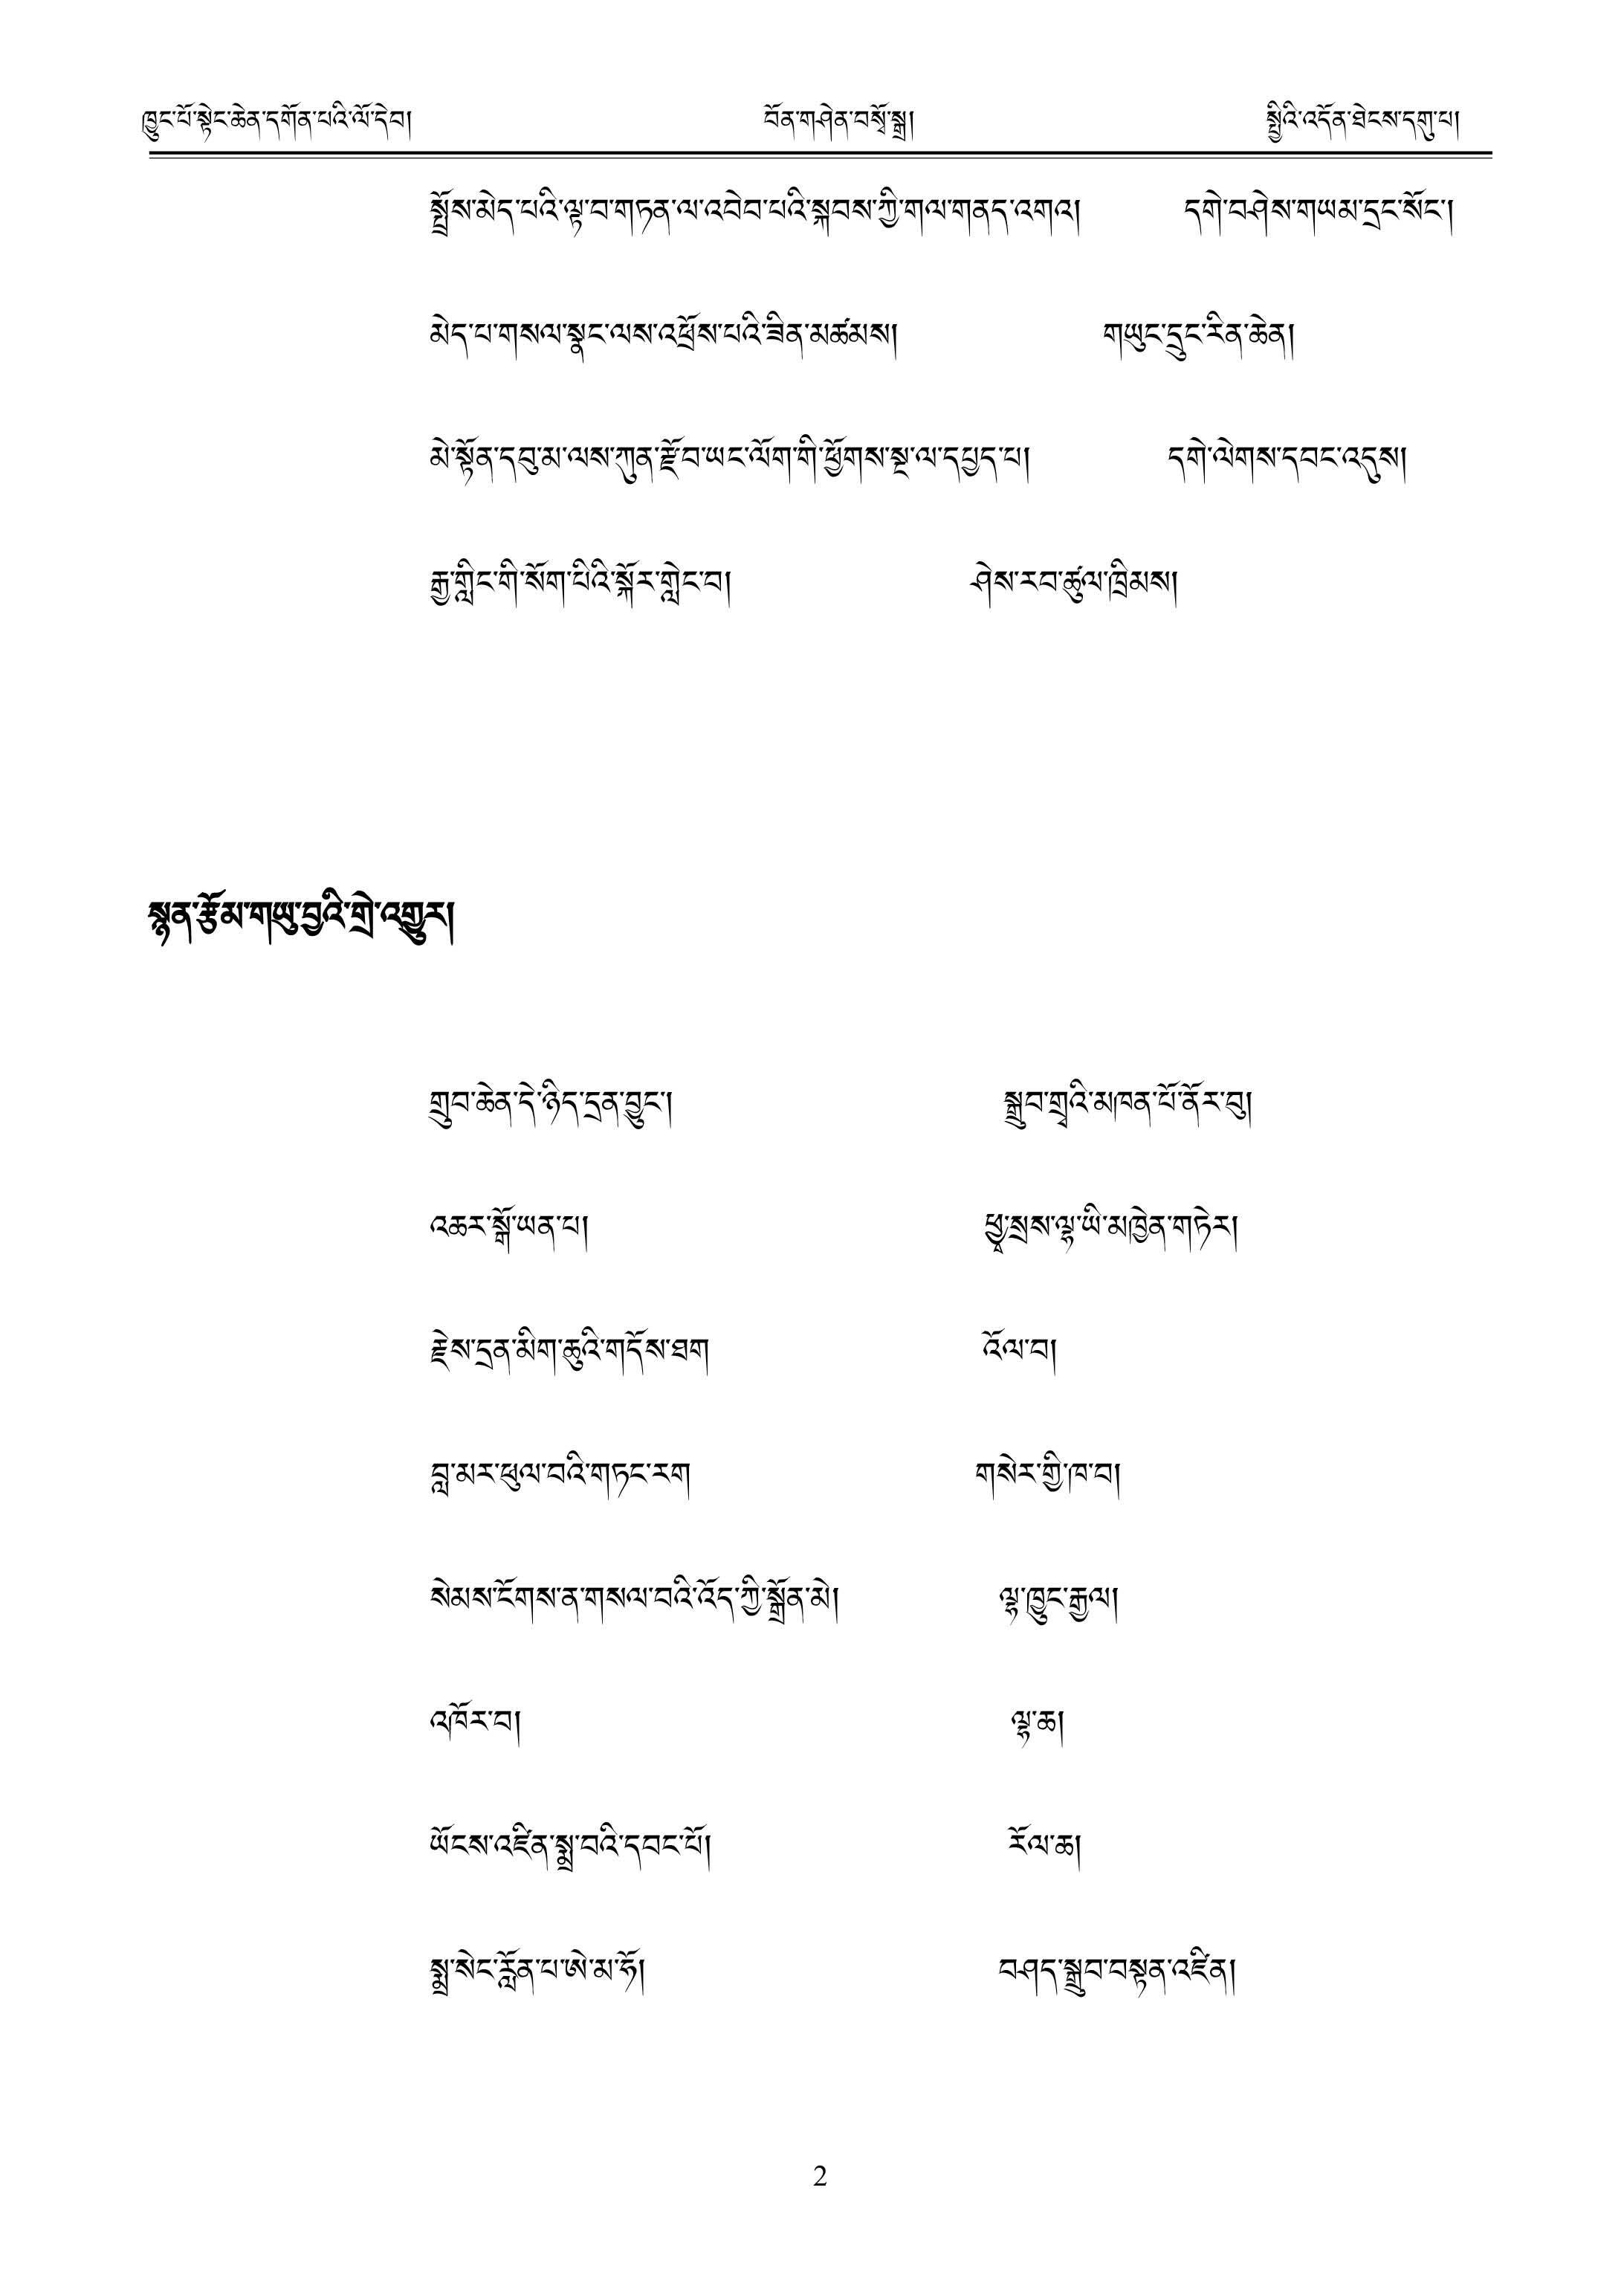 ཁྱུང་པོ་སྟེང་ཆེན་དགོན་པའི་ལོ་དེབ། བོན་གཤེན་བསྭོ་སྒྲ། སྤྱིའི་འདོན་ཐེངས་དགུ་པ།
སྤྲོས་མེད་པའི་ལྟ་བ་གཏན་ལ་འབེབ་པའི་སྐབས་ཀྱི་གལ་གནད་འགའ། དགེ་བཤེས་གཡམ་དྲང་སོང་།
མེད་པ་གསལ་སྣང་ལས་འཕྲོས་པའི་ཟིན་མཚམས། གཡུང་དྲུང་རིན་ཆེན།
མེ་སྟོན་དབུ་མ་ལས་ཀུན་རྫོབ་ཡང་ལོག་གི་ཕྱོགས་སྔ་ལ་དཔྱད་པ། དགེ་ལེགས་དབང་འདུས།
རྒྱ་གླིང་གི་སོག་པིའི་སྐོར་གླེང་བ། ཤེས་རབ་ཚུལ་ཁྲིམས།
སྙན་རྩོམ་གཡུ་བྱའི་གྲེ་འགྱུར།
གྲུབ་ཆེན་དེ་ཉིད་དྲན་བྱུང་། སྒྲུབ་གྲྭའི་མཁན་པོ་ནོར་བུ།
འཆར་སྒོ་ཡན་པ། ཕྱྭ་སྲས་ལྷ་ཡི་མཁྱེན་གཏེར།
རྗེས་དྲན་མིག་ཆུའི་གདོས་ཐག འོལ་བ།
བླ་མར་ཕུལ་བའི་གཏང་རག གསེར་གྱི་ཁ་བ།
སེམས་ངོགས་ན་གསལ་བའི་འོད་ཀྱི་སྒྲོན་མེ། ལྷ་ཁྱུང་རྒྱལ།
འཁོར་བ། ལྷ་ཆ།
ཡོངས་འཛིན་སྨྲ་བའི་དབང་པོ། རོལ་ཆ།
སྨྲ་སེང་རློན་པ་ཨེ་མ་ཧོ། བཤད་སྒྲུབ་བསྟན་འཛིན།
2